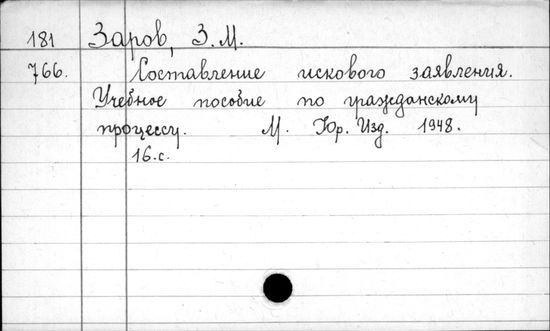 181 Заров, З.М.
766. Составление искового заявления.
Учебное пособие по гражданскому
процессу. М. Юр. Изд. 1948.
16.с.